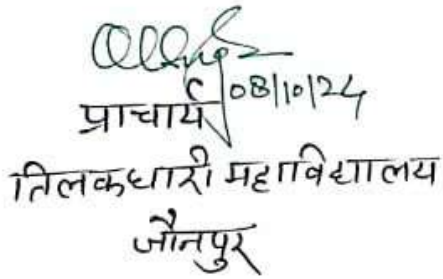 08/10/24
प्राचार्य
तिलकधारी महाविद्यालय
जौनपुर